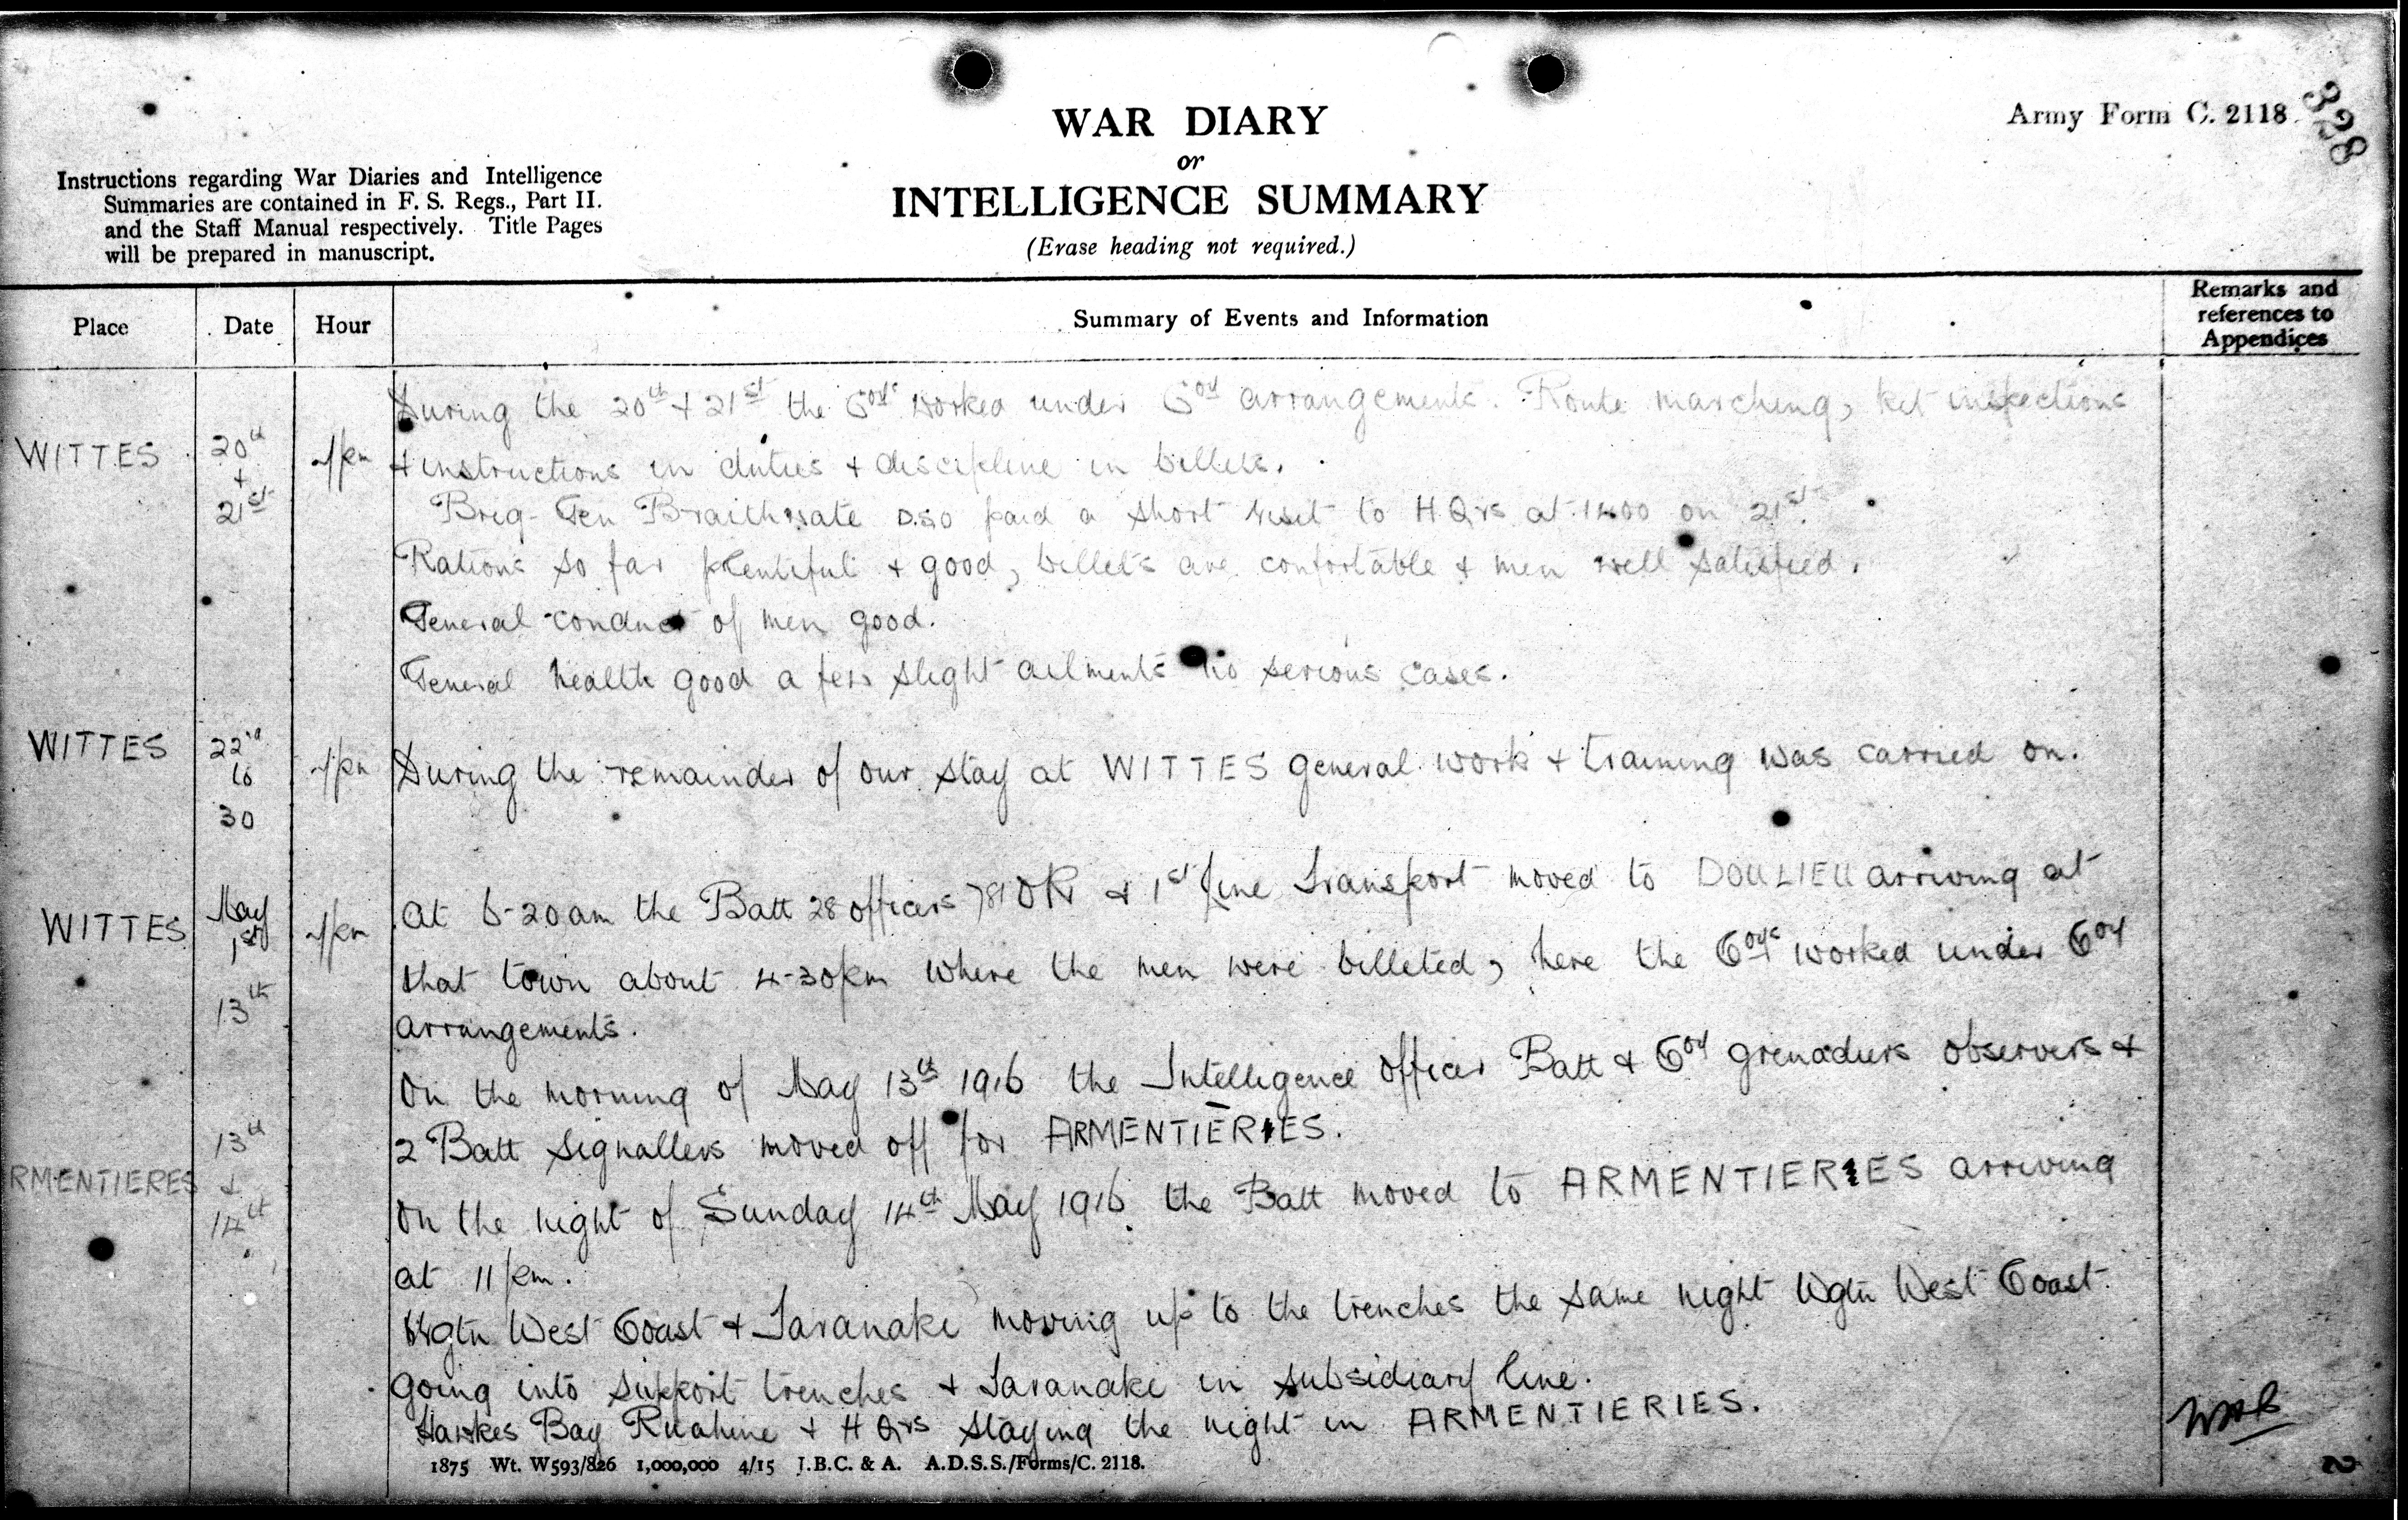 WAR DIARY
or
INTELLIGENCE SUMMARY
(Erase heading not required.)
Army Form C. 2118.
328
Instructions regarding War Diaries and Intelligence
Summaries are contained in F. S. Regs., Part II.
and the Staff Manual respectively. Title Pages
will be prepared in manuscript.
Place Date Hour Summary of Events and Information Remarks and references to Appendices
During the 20th + 21st the Coys worked under Coy arrangements. Route marching, kit inspections
WITTES 20th + 21st + instructions in duties + discipline in billets.
Brig-Gen Braithwate D.SO paid a short visit to H.Qrs at 1400 on 21st.
Rations so far plentiful + good, billets are confortable + men well satisfied.
General conduct of men good.
General health good a few slight ailments no serious cases.
WITTES 22nd to 30 During the remainder of our stay at WITTES general work + training was carried on.
WITTES May 1st At 6-20am the Batt 28 officers 781 OR + 1st line Transport moved to DOULIEU arriving at
that town about 4-30pm where the men were billeted, here the Coys worked under Coy
13th arrangements.
On the morning of May 13th 1916 the Intelligence Officer Batt + Coy grenadiers observers +
13th 2 Batt Signallers moved off for ARMENTIERIES.
RMENTIERES + 14th On the night of Sunday 14th May 1916 the Batt moved to ARMENTIERIES arriving
at 11 pm.
Wgtn West Coast + Taranaki moving up to the trenches the same night Wgtn West Coast
going into support trenches + Taranaki in subsidiary line.
Hawkes Bay Ruahine + H Qrs staying the night in ARMENTIERIES.
1875 Wt. W593/826 1,000,000 4/15 J.B.C. & A. A.D.S.S./Forms/C. 2118.
2